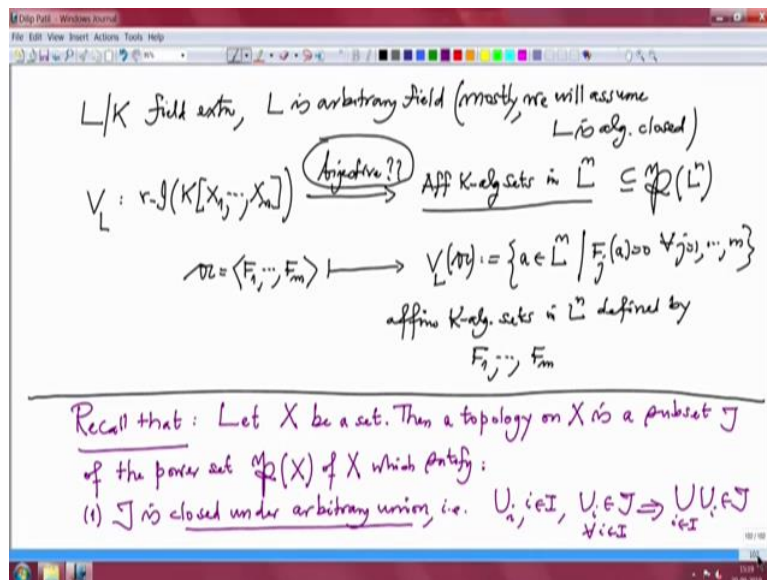 Dilip Patil - Windows Journal
File Edit View Insert Actions Tools Help
L/K field extn, L is arbitrary field (mostly, we will assume
L is alg. closed)
V_L : r-I(K[X_1,...,X_n]) bijective?? → Aff K-alg sets in L^n ⊆ P(L^n)
𝔞 = ⟨F_1,...,F_m⟩ ↦ V_L(𝔞) := {a ∈ L^n | F_j(a)=0 ∀ j=1,...,m}
affine K-alg. sets in L^n defined by
F_1,..., F_m
Recall that : Let X be a set. Then a topology on X is a subset J
of the power set P(X) of X which satisfy :
(1) J is closed under arbitrary union, i.e. U_i, i∈I, U_i ∈ J ∀ i∈I ⇒ ⋃ U_i ∈ J
i∈I